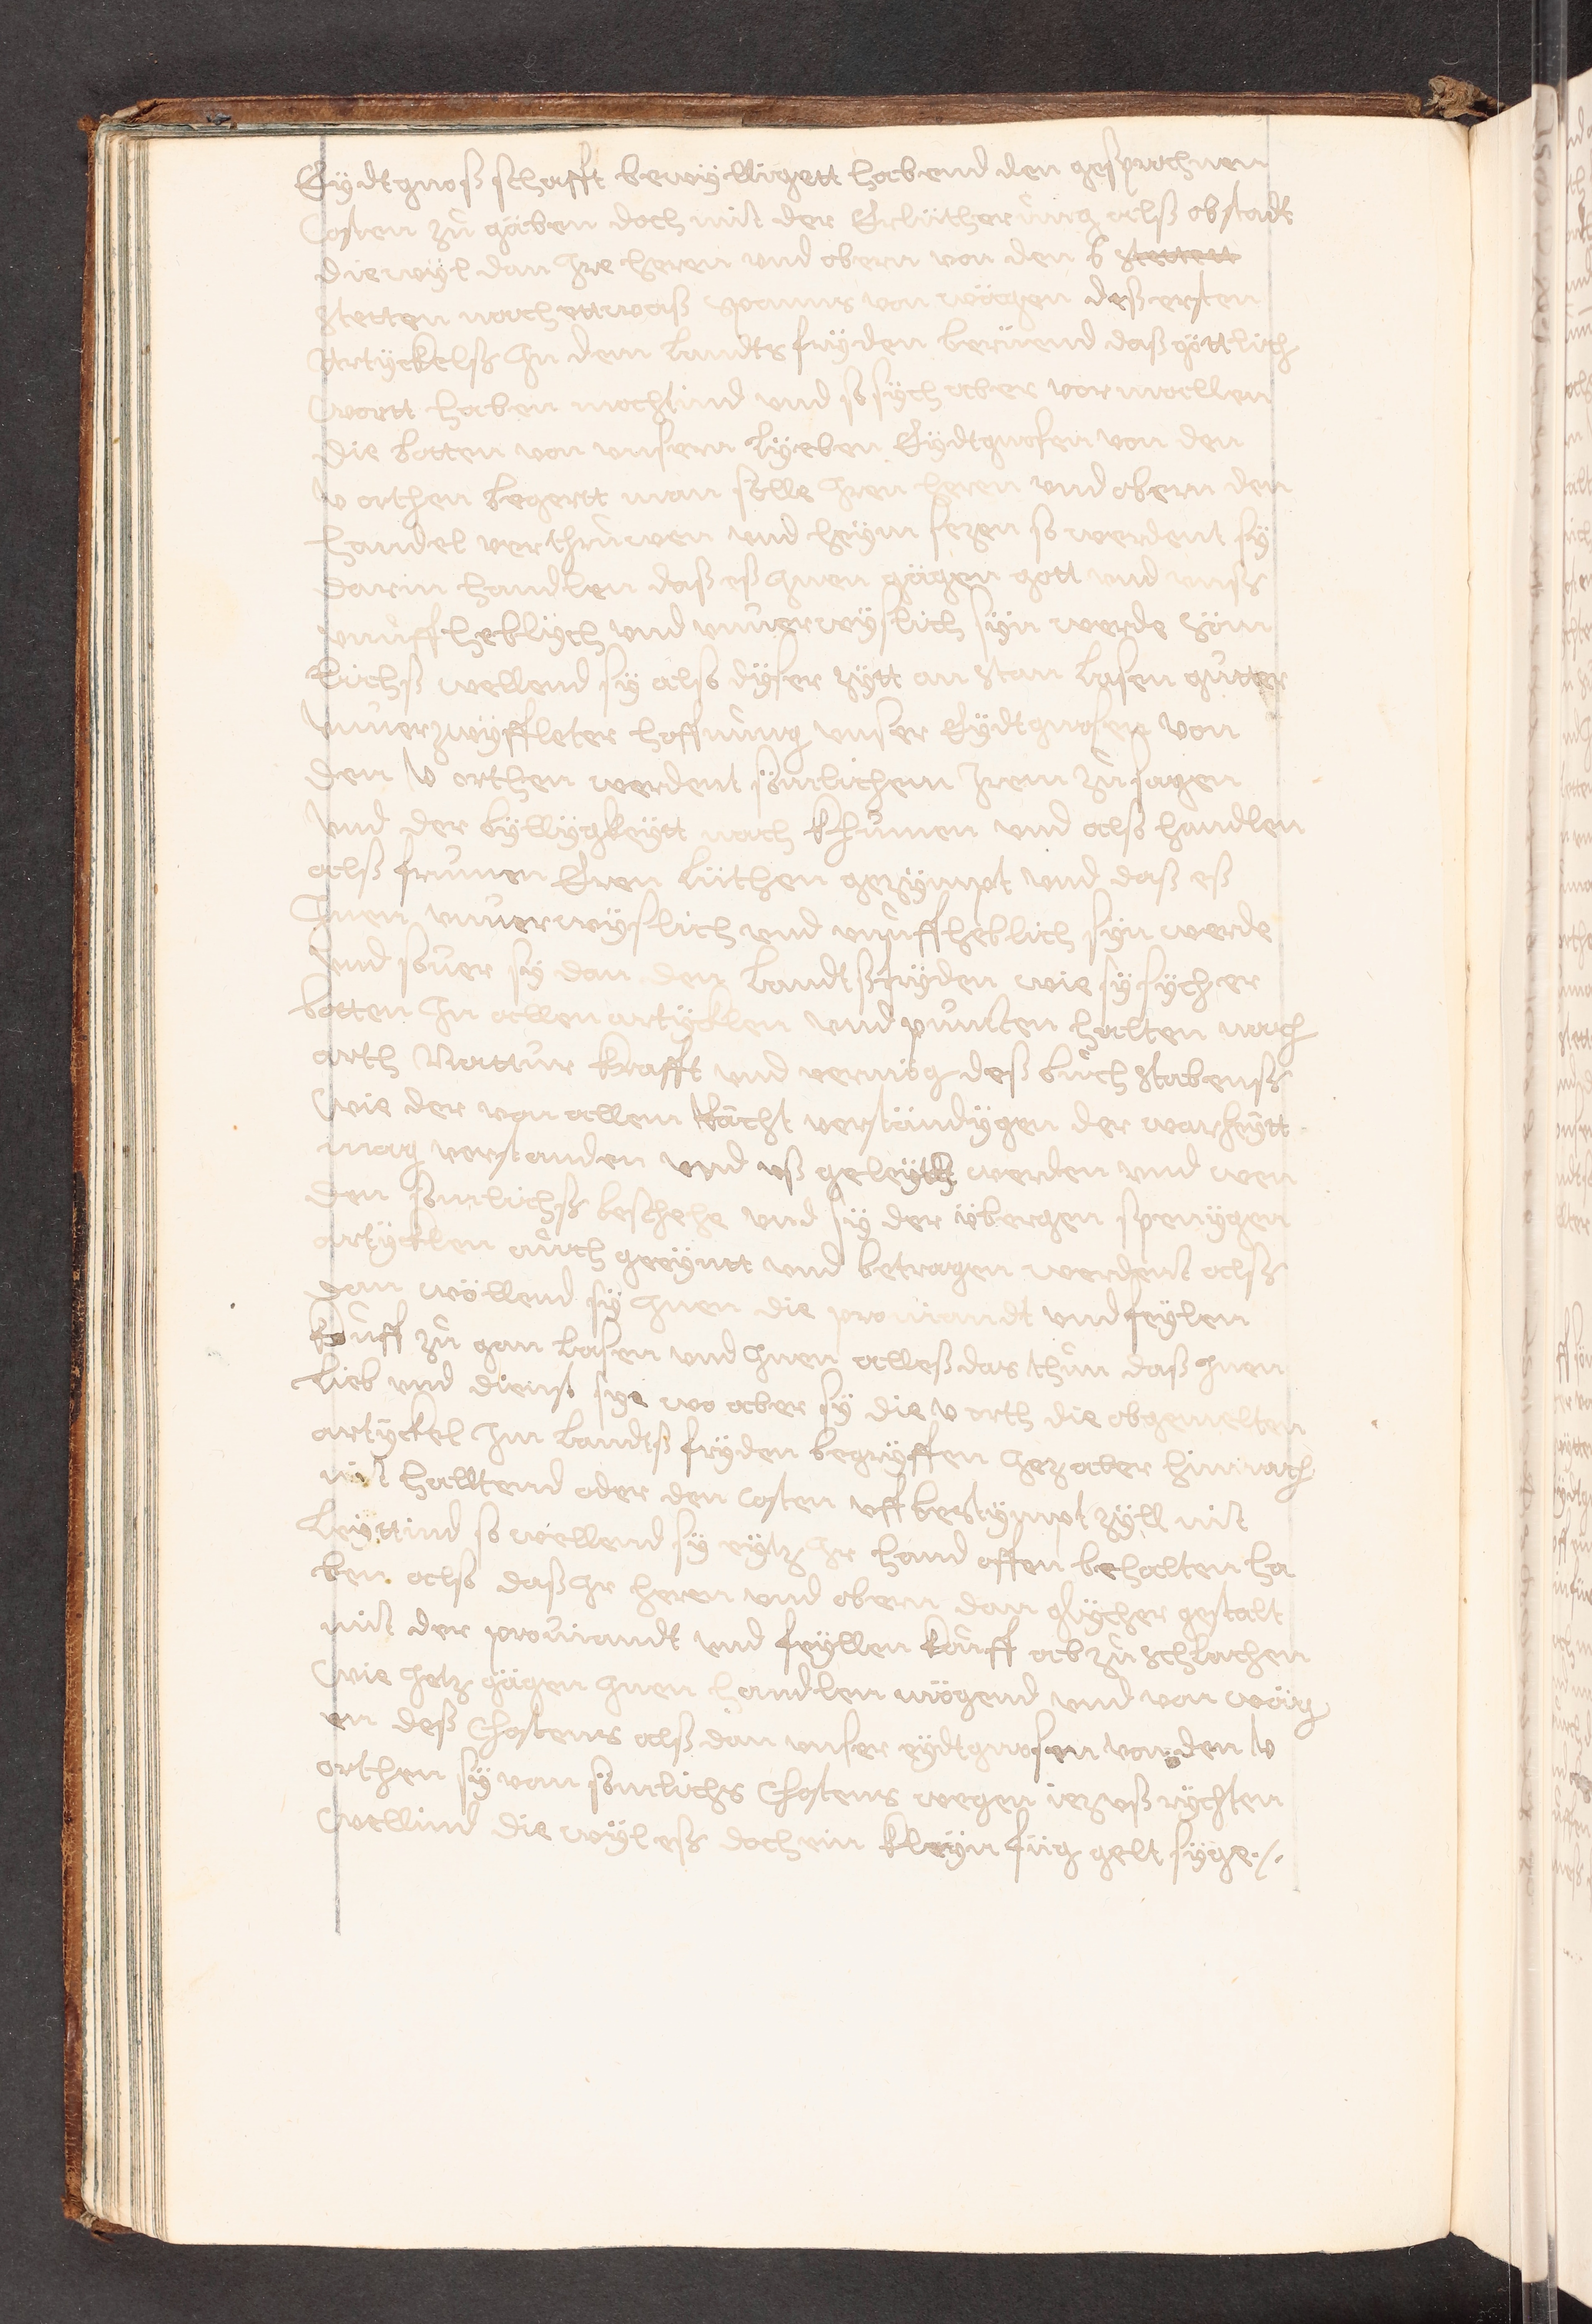 Eÿdtgnoßschafft bewÿlligett habend den gesprochnen
Costen zů gäben doch mit der Erlütherůng alß obstadt
diewÿl dan Ire heren und obern von den 6 stetten
stetten noch ettwaß spanns von wägen deß ersten
Artÿckelß In dem Landts frÿden berüend daß göttlich
wortt haben möchtind und so sÿch aber vormallen
die botten von unsern lÿeben Eÿdtgnosen von den
V orthen begertt man sölle Iren heren und obern den
handel verthrůwen und heÿm sezen so werdent sÿ
darin handlen daß eß Inen gägen gott und unß
unůffheblÿch und unverwÿslich sÿn werde söm
lichß wellend sÿ also dÿser zÿtt an stan lasen gůtter
unverzwÿffleter hoffnůng unser Eÿdtgnosen von
den V orthen werdent sömlichem Irem zůsagen
und der bÿllÿgkeÿtt nach khůmen und also handlen
alß frumen Eren lüthen gezÿmpt und daß eß
Inen unverwÿslich und unůffheblich sÿn werde
und sover sÿ dan den Landtßfrÿden wie sÿ sÿch er
botten In allen artÿcklen und puncten halten nach
arth Nattur krafft und vermög deß bůchstabenß
wie der von allem Rächt verständÿgen der warheÿtt
mag verstanden und uß geleÿtt werden und wen
den sömlichß beschehe und sÿ der übergen spenÿgen
artÿcklen aůch geeÿntt und betragen werdent alß
dan wöllend sÿ Inen die proviandt und feÿlen
koůff zů gan lasen und Inen alleß das thůn daß Inen
lieb und dienst sye wo aber sÿ die V orth die obgemelten
artÿckel Im Landtß frÿden begrÿffen Iez aber hinnach
nit halltend oder den costen uff bestÿmpt zÿll nit
leÿttind so wellend sÿ eÿtz Ir hand offen behalten ha
ben also daß Ir heren und obern dan glÿcher gestalt
mit der proviandt und feÿllen koůff ab zů schlachen
wie Ietz gägen Inen handlen mögend und von wäg
en deß Chostens alß dan unser eÿdtgnosen von den V
orthen sÿ von sömlichs Chostens wegen iez uß rÿchten
wellind die wÿl eß doch ein kleÿn füg gelt sÿge ./.